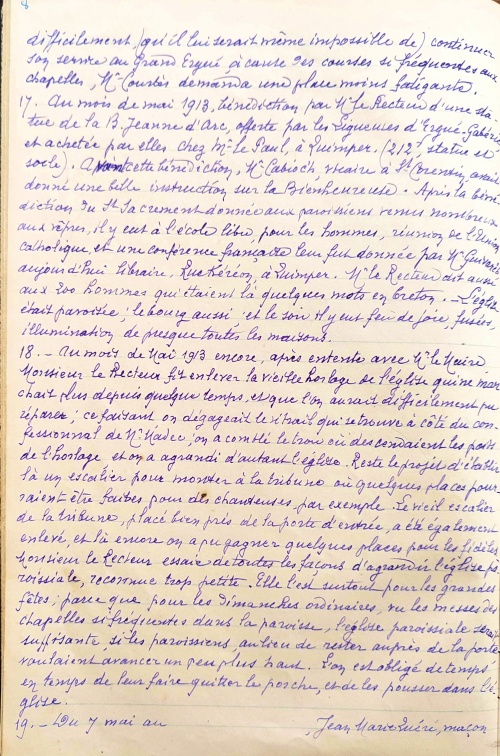 8
difficilement, (qu'il lui serait même impossible de) continuer
son service au Grand Ergué, à cause des courses si fréquentes aux
chapelles, Mr Courtès demanda une place moins fatigante.
17. Au mois de mai 1913, bénédiction par Mr le Recteur d'une sta-
tue de la B. Jeanne d'Arc, offerte par les Ligueuses d'Ergué-Gabéric
et achetée par elles chez Mr le Paul, à Quimper. (212f statue et
socle). Avant cette bénédiction, Mr Cabioch, vicaire à St Corentin, avait
donné une belle instruction sur la Bienheureuse. Après la béné-
diction du St Sacrement donnée aux paroissiens venus nombreux
aux vêpres, il y eut à l'école libre, pour les hommes, réunion de l'Union
catholique et une conférence française leur fut donnée par Mr
aujourd'hui libraire, Rue Kéréon, à Quimper. Mr le Recteur dit aussi
aux 200 hommes qui étaient là quelques mots en breton. L'église
était pavoisée; le bourg aussi et le soir il y eut feu de joie, fusées,
illumination de presque toutes les maisons.
18. - Au mois de Mai 1913 encore, après entente avec Mr le Maire,
Monsieur le Recteur fit enlever la vieille horloge de l'église qui ne mar-
chait plus depuis quelque temps, et que l'on aurait difficilement pu
réparer; ce faisant on dégageait le vitrail qui se trouve à côté du con-
fessionnal de Mr Madec; on a comblé le trou où descendaient les poids
de l'horloge et on a agrandi d'autant l'église. Reste le projet d'établir
là un escalier pour monter à la tribune où quelques places pour-
raient être faites pour des chanteuses, par exemple. Le vieil escalier
de la tribune, placé bien près de la porte d'entrée, a été également
enlevé, et là encore on a pu gagner quelques places pour les fidèles.
Monsieur le Recteur essaie de toutes les façons d'agrandir l'église pa-
roissiale, reconnue trop petite. Elle l'est surtout pour les grandes
fêtes; parce que pour les dimanches ordinaires, vu les messes des
chapelles si fréquentes dans la paroisse, l'église paroissiale serait
suffisante, si les paroissiens, au lieu de rester auprès de la porte
voulaient avancer un peu plus haut. L'on est obligé de temps
en temps de leur faire quitter le porche, et de les pousser dans l'é-
glise.
19. - Du 7 mai au Jean Marie, maçon